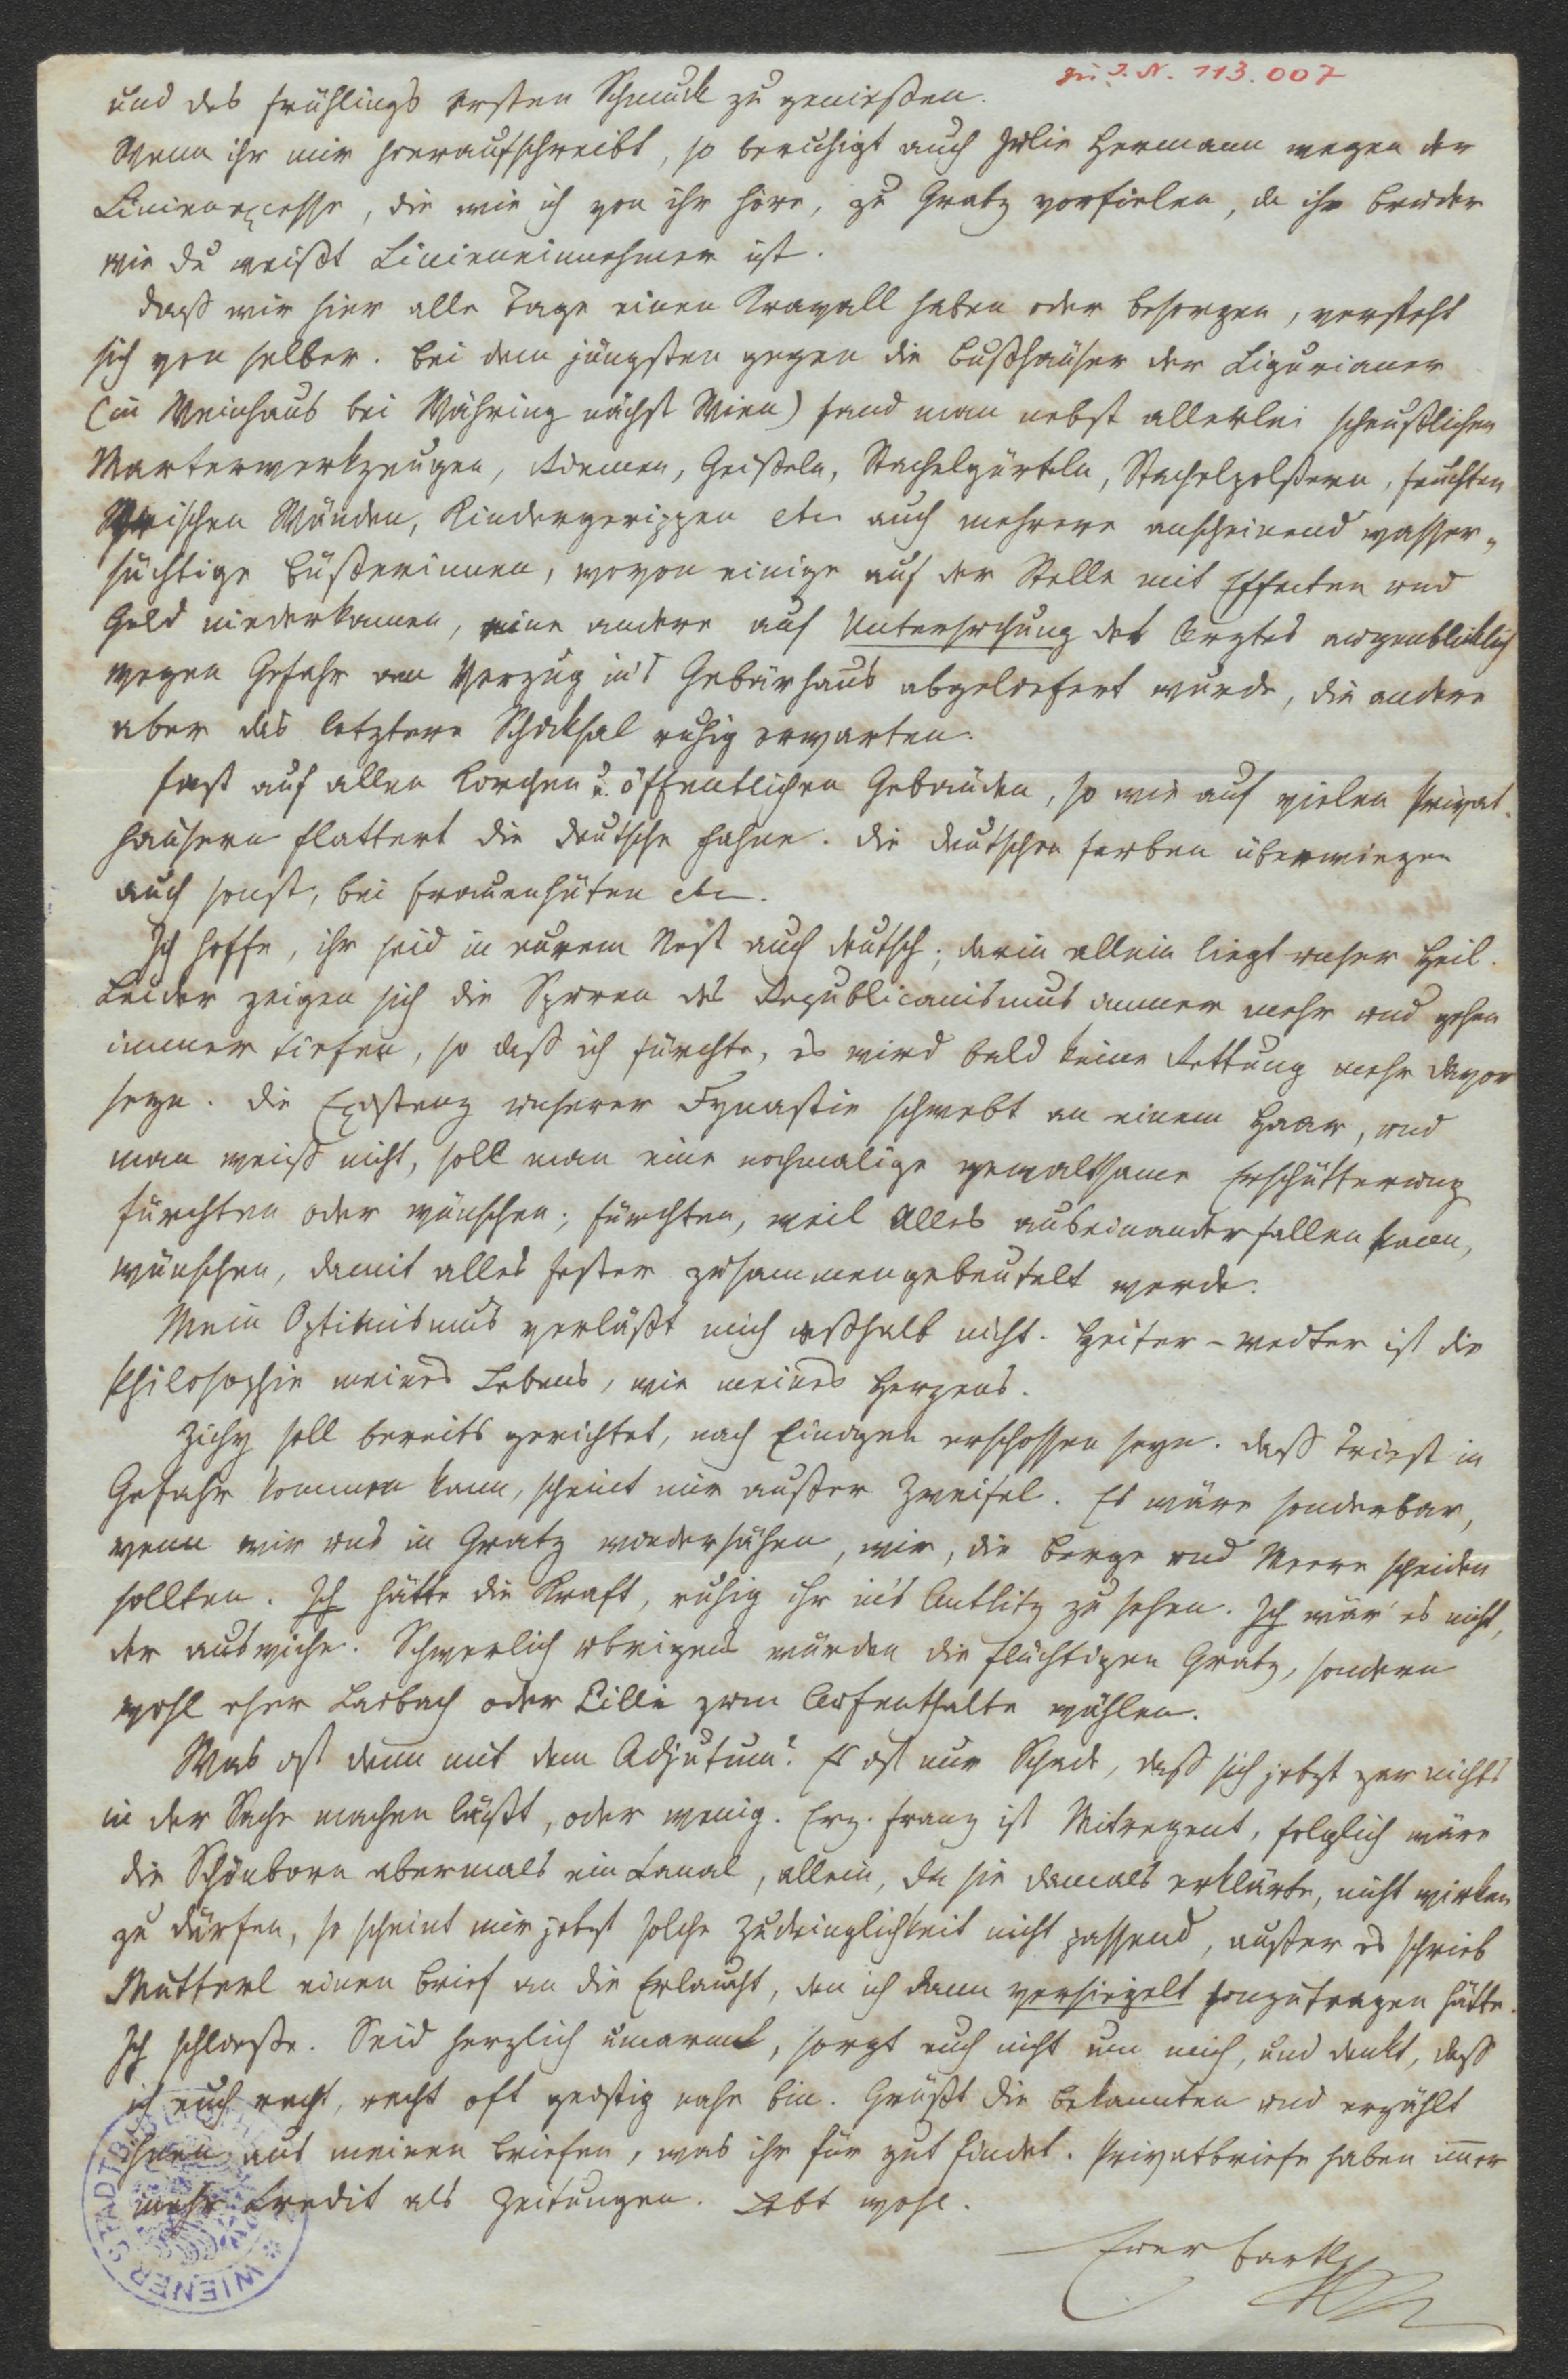 zu I. N. 113.007
und des Frühlings ersten Schmuck zu genießen.
Wenn ihr mir hieraufschreibt, so beruhigt auch Julie Hermann wegen der
Linienexcesse, die wie ich von ihr höre, zu Gratz vorfielen, da ihr Bruder
wie du weißt Linieneinnehmer ist.
Daß wir hier alle Tage einen Kravall haben oder besorgen, versteht
sich von selber. Bei dem jüngsten gegen die Bußhäuser der Ligurianer
(in Weinhaus bei Währing nächst Wien) fand man nebst allerlei scheußlichen
Marterwerkzeugen, Riemen, Geißeln, Stachelgürteln, Stachelpolstern, feuchten
Wänden, Kindergerippen etc auch mehrere anscheinend wasser-
süchtige Büßerinnen, wovon einige auf der Stelle mit Effecten und
Geld niederkamen, eine andere auf Untersuchung des Arztes augenblicklich
wegen Gefahr am Verzug in's Gebärhaus abgeliefert wurde, die andere
aber das letztere Schicksal ruhig erwarten.
Fast auf allen Kirchen u. öffentlichen Gebäuden, so wie auf vielen Privat-
häusern flattert die deutsche Fahne. Die deutschen Farben überwiegen
auch sonst, bei Frauenhüten etc.
Ich hoffe, ihr seid in eurem Nest auch deutsch; darin allein liegt unser Heil.
Leider zeigen sich die Spuren des Republicanismus immer mehr und gehen
immer tiefer, so daß ich fürchte, es wird bald keine Rettung mehr davor
seyn. Die Existenz unserer Dynastie schwebt an einem Haar, und
man weiß nicht, soll man eine nochmalige gewaltsame Erschütterung
fürchten oder wünschen; fürchten, weil Alles auseinanderfallen kann,
wünschen, damit alles fester zusammengebeutelt werde.
Mein Optimismus verläßt mich deßhalb nicht. Heiter-weiter ist die
Philosophie meines Lebens, wie meines Herzens.
Zichy soll bereits gerichtet, nach Einigen erschossen seyn. Daß Triest in
Gefahr kommen kann, scheint mir außer Zweifel. Es wäre sonderbar,
wenn wir uns in Gratz wiedersähen, wir, die Berge und Meere scheiden
sollten. Ich hätte die Kraft, ruhig ihr in's Antlitz zu sehen. Ich wär' es nicht,
der auswiche. Schwerlich übrigens würden die Flüchtigen Gratz, sondern
wohl eher Laibach oder Cilli zum Aufenthalte wählen.
Was ist denn mit dem Adjutum? Es ist nur Schade, daß sich jetzt gar nichts
in der Sache machen läßt, oder wenig. Erz. Franz ist Mitregent, folglich wäre
die Schönborn abermals ein Canal, allein, da sie damals erklärte, nicht wirken
zu dürfen, so scheint mir jetzt solche Zudringlichkeit nicht passend, außer es schrieb
Mutterl einen Brief an die Erlaucht, den ich dann versiegelt hinzutragen hätte.
Ich schließe. Seid herzlich umarmt, sorgt euch nicht um mich, und denkt, daß
ich euch recht, recht oft geistig nahe bin. Grüßt die Bekannten und erzählt
ihnen aus meinen Briefen, was ihr für gut findet. Privatbriefe haben immer
mehr Credit als Zeitungen. Lebt wohl.
Euer Bartl
WIENER STADTBIBLIOTHEK